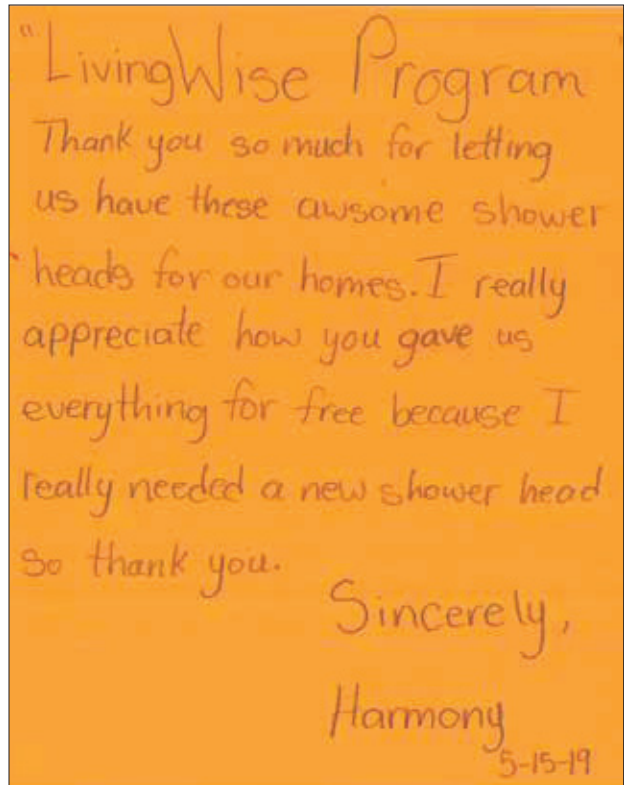 "LivingWise Program"
Thank you so much for letting
us have these awsome shower
heads for our homes. I really
appreciate how you gave us
everything for free because I
really needed a new shower head
so thank you.
Sincerely,
Harmony
5-15-19